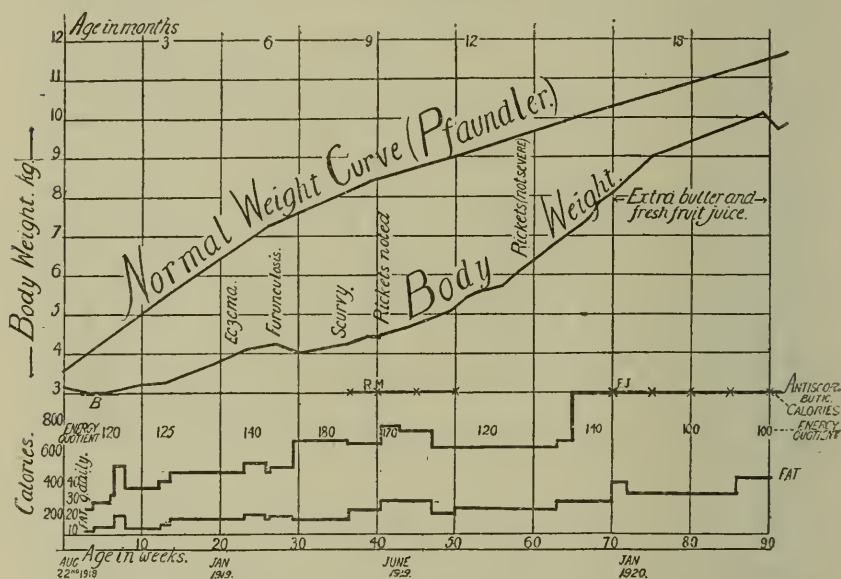 Age in months
3 6 9 12 18
12
11
10
9
8
7
6
5
4
3
Body Weight. kg.
Normal Weight Curve (Pfaundler.)
Body Weight.
Eczema.
Furunculosis.
Scurvy.
Rickets noted
Rickets (not severe)
Extra butter and
fresh fruit juice.
B
R.M
F.J
ANTISCOR
BUTIC.
CALORIES
ENERGY
QUOTIENT
ENERGY
QUOTIENT
120 125 140 180 170 120 140 100 100
Calories.
800
600
400
200
FAT g. daily.
40
30
20
10
FAT
10 20 30 40 50 60 70 80 90
Age in weeks.
AUG
22ND 1918
JAN
1919.
JUNE
1919.
JAN
1920.